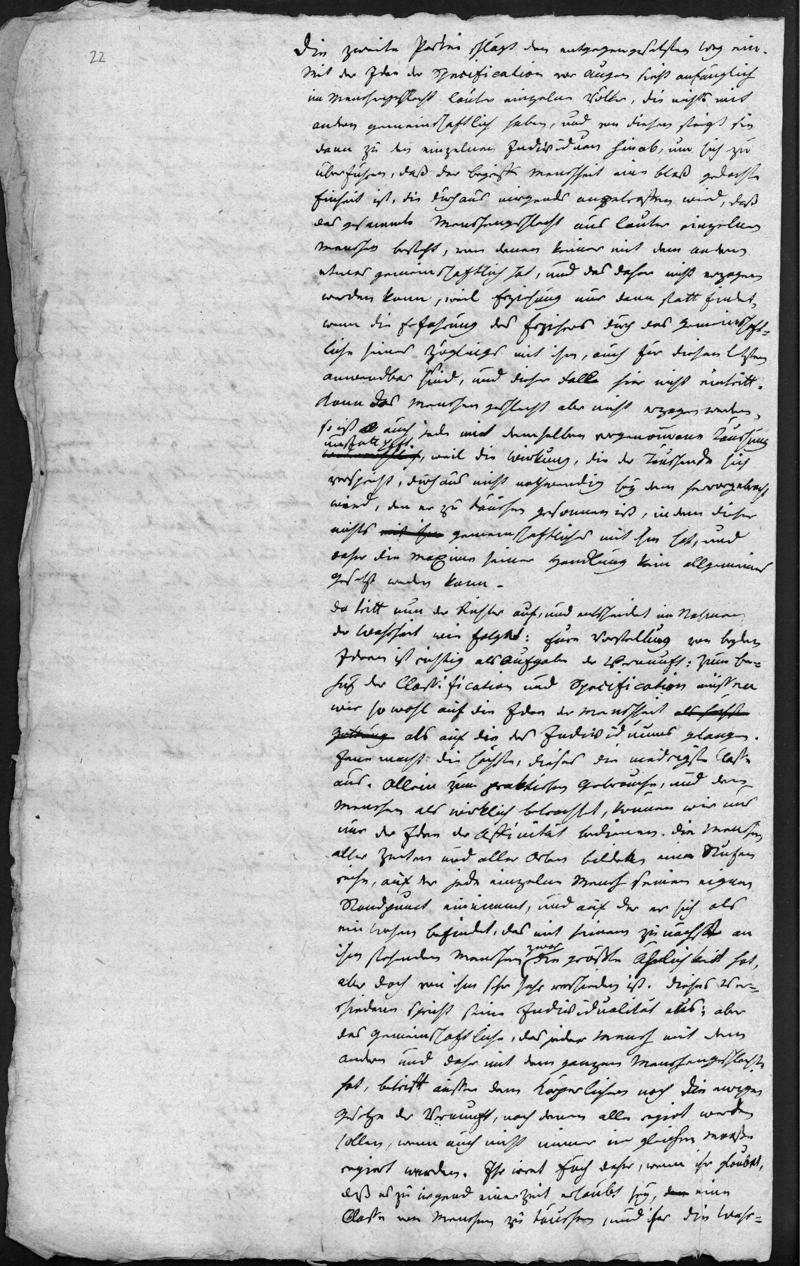 22
Die zweite Partei schlägt den entgegengesetzten Weg ein.
Mit der Idee der Specification vor Augen sieht anfänglich
im Menschengeschlecht lauter einzelne Völker, die nichts mit
andern gemeinschaftlich haben, und von diesen steigt sie
dann zu den einzelnen Individuen hinab, um sich zu
überführen, daß der Begriff Menschheit eine bloß gedachte
Einheit ist, die durchaus nirgends angetroffen wird, daß
das gesammte Menschengeschlecht aus lauter einzelnen
Menschen besteht, von denen keiner mit dem andern
etwas gemeinschaftlich hat, und das daher nicht erzogen
werden kann, weil Erziehung nur dann statt findet,
wenn die Erfahrung des Erziehers durch das Gemeinschaft-
liche seines Zöglings mit ihm, auch für diesen Letztern
anwendbar sind, und dieser Fall hier nicht eintritt.
Kann das Menschengeschlecht aber nicht erzogen werden,
so ist auch jede mit demselben vorgenommene Täuschung
unstatthaft, weil die Wirkung, die der Täuschende sich
verspricht, durchaus nicht nothwendig bey dem hervorgebracht
wird, den er zu täuschen gesonnen ist, indem dieser
nichts gemeinschaftliches mit ihm hat, und
daher die Maxime seiner Handlung kein allgemeines
Gesetz werden kann.
Da tritt nun der Richter auf, und entscheidet im Nahmen
der Wahrheit wie folgt: Eure Vorstellung von beyden
Ideen ist richtig als Aufgabe der Vernunft: zum Be-
huf der Classification und Specification müssen
wir so wohl auf die Idee der Menschheit
als auf die des Individuums gelangen.
Jene macht die höchste, dieses die niedrigste Classe
aus. Allein zum praktischen Gebrauche, und den
Menschen als wirklich betrachtet, können wir uns
nur der Idee der Affinität bedienen. Die Menschen
aller Zeiten und aller Orten bilden eine Stufen
reihe, auf der jede einzelne Mensch seinen eignen
Standpunct einnimmt, und auf der er sich als
ein Wesen befindet, das mit seinem zunächst an
ihm stehenden Menschen zwar die größte Ähnlichkeit hat,
aber doch von ihm sehr verschieden ist. Dieses Ver-
schiedene spricht seine Individualität aus; aber
das Gemeinschaftliche, das jeder Mensch mit dem
andern und daher mit dem ganzen Menschengeschlechte
hat, betrifft ausser dem Körperlichen noch die ewigen
Gesetze der Vernunft, nach denen alle regiert werden
sollen, wenn auch nicht immer in gleichem Maaße
regiert werden. Ihr irret Euch daher, wenn ihr glaubt,
daß es zu irgend einer Zeit erlaubt sey, eine
Classe von Menschen zu täuschen, und ihr die Wahr-